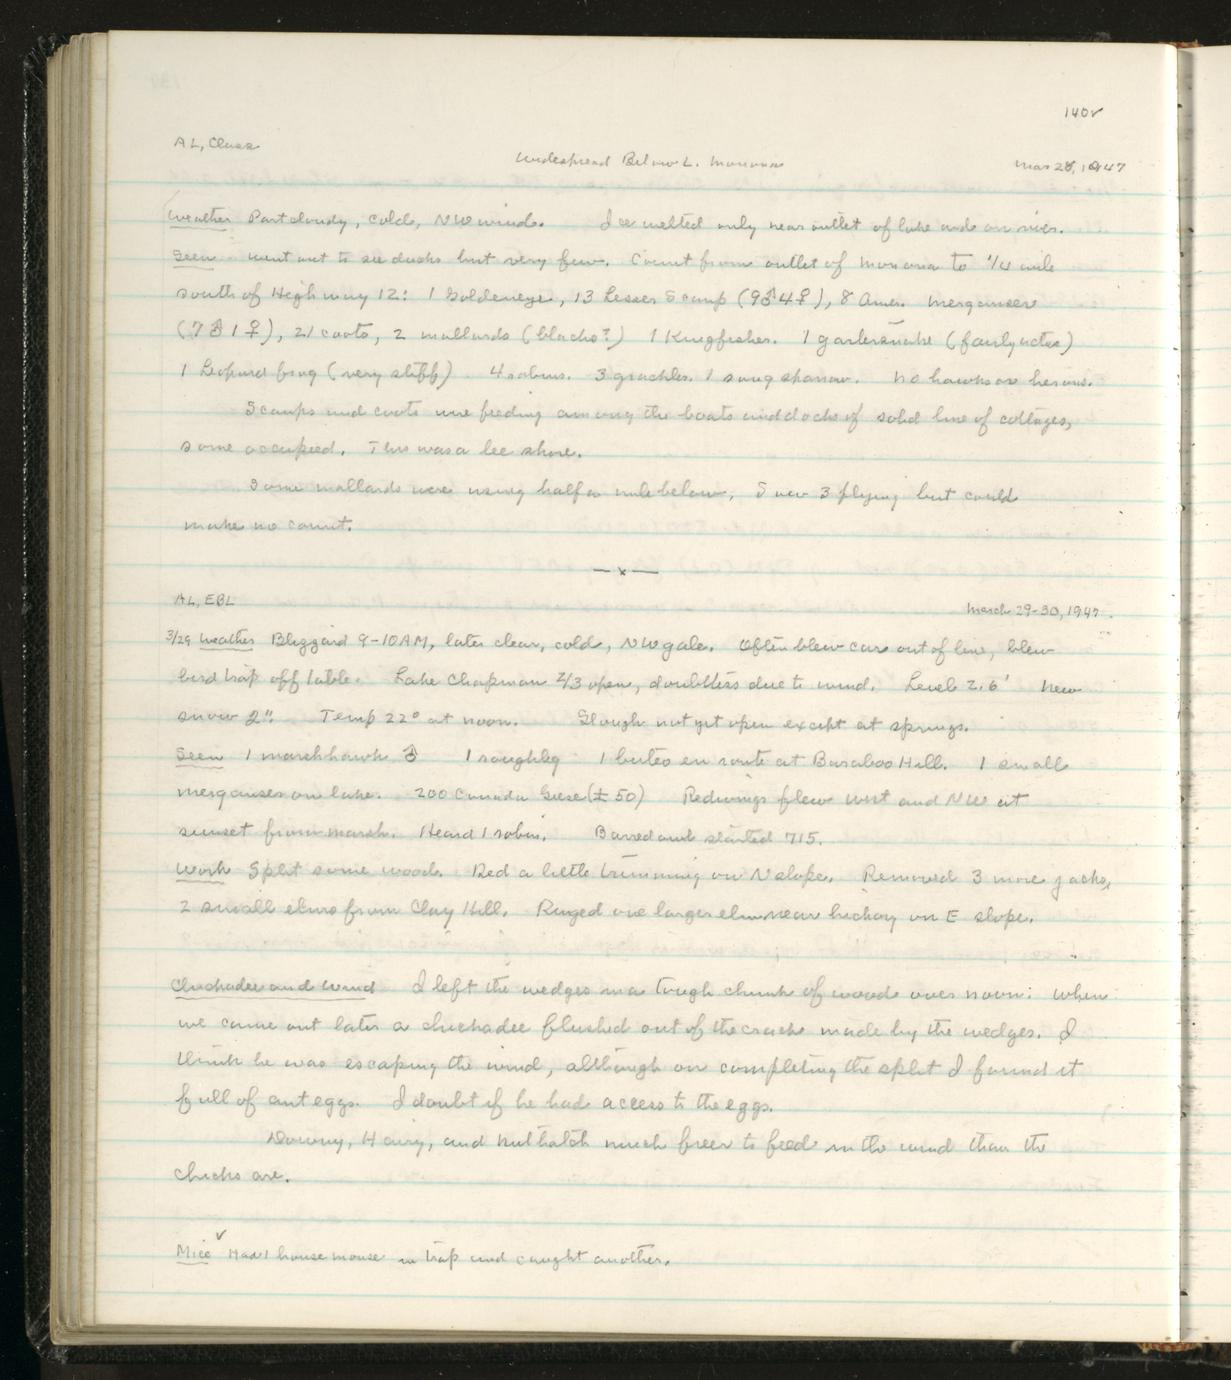 140r
AL, Class
Widespread Below L. Monona
Mar 28, 1947
Weather Part cloudy, cold, NW wind. Ice melted only near outlet of lake and on river.
Seen Went out to see ducks but very few. Count from outlet of Monona to 1/4 mile
south of Highway 12: 1 Goldeneye, 13 Lesser Scaup (9♂4♀), 8 Amer. Merganser
(7♂1♀), 21 coots, 2 mallards (blacks?) 1 Kingfisher. 1 gartersnake (fairly active)
1 Leopard frog (very stiff) 4 robins. 3 grackles. 1 song sparrow. No hawks or herons.
Scaups and coots were feeding among the boats and docks of solid line of cottages,
some occupied. This was a lee shore.
Some mallards were using half a mile below, Saw 3 flying but could
make no count.
—x—
AL, EBL
March 29-30, 1947.
3/29 Weather Blizzard 9-10AM, later clear, cold, NW gale. Often blew car out of line, blew
bird trap off table. Lake Chapman 2/3 open, doubtless due to wind. Level 2.6' New
snow 2". Temp 22° at noon. Slough not yet open except at springs.
Seen 1 marshhawk ♂ 1 roughleg 1 buteo en route at Baraboo Hill. 1 small
merganser on lake. 200 Canada Geese (± 50) Redwings flew west and NW at
sunset from marsh. Heard 1 robin. Barred owl started 715.
Work Split some wood. Did a little trimming on N slope. Removed 3 more jacks,
2 small elms from Clay Hill. Ringed one larger elm near hickory on E slope.
Chickadee and Wind I left the wedges in a tough chunk of wood over noon. When
we came out later a chickadee flushed out of the cracks made by the wedges. I
think he was escaping the wind, although on completing the split I found it
full of ant eggs. I doubt if he had access to the eggs.
Downy, Hairy, and Nuthatch much freer to feed in the wind than the
chicks are.
Mice ✓ Had 1 house mouse in trap and caught another.